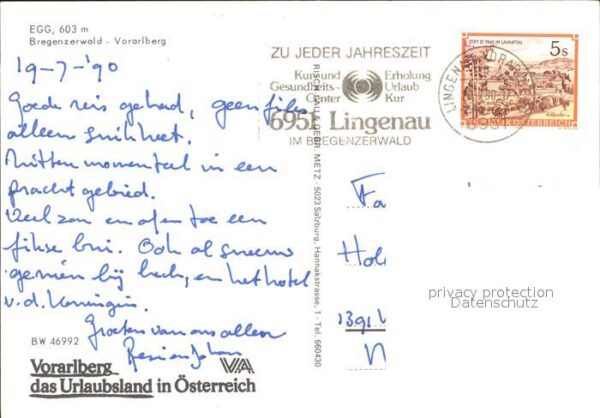 EGG, 603 m
Bregenzerwald - Vorarlberg
19-7-'90
Goede reis gehad, geen files
alleen
Zitten momenteel in een
prachtgebied.
Veel zon en af en toe een
fikse bui. Ook al
bij het hotel
v.d. Koningin.
Groeten van ons allen
BW 46992
Vorarlberg
das Urlaubsland in Österreich
VA
RISCH-LAU & GEBR. METZ · 5023 Salzburg, Hannakstrasse, 1 - Tel. 660430
ZU JEDER JAHRESZEIT
Kur und Gesundheits-Center
Erholung Urlaub Kur
6951 Lingenau
IM BREGENZERWALD
LINGENAU, VORARLB
STIFT ST. PAUL IM LAVANTTAL
5s
REPUBLIK ÖSTERREICH
Fa
Hol
1391
privacy protection
Datenschutz